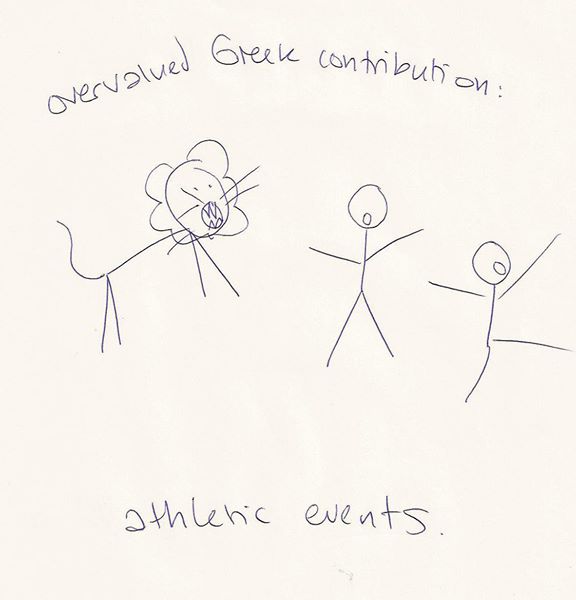 overvalued Greek contribution:
athletic events.